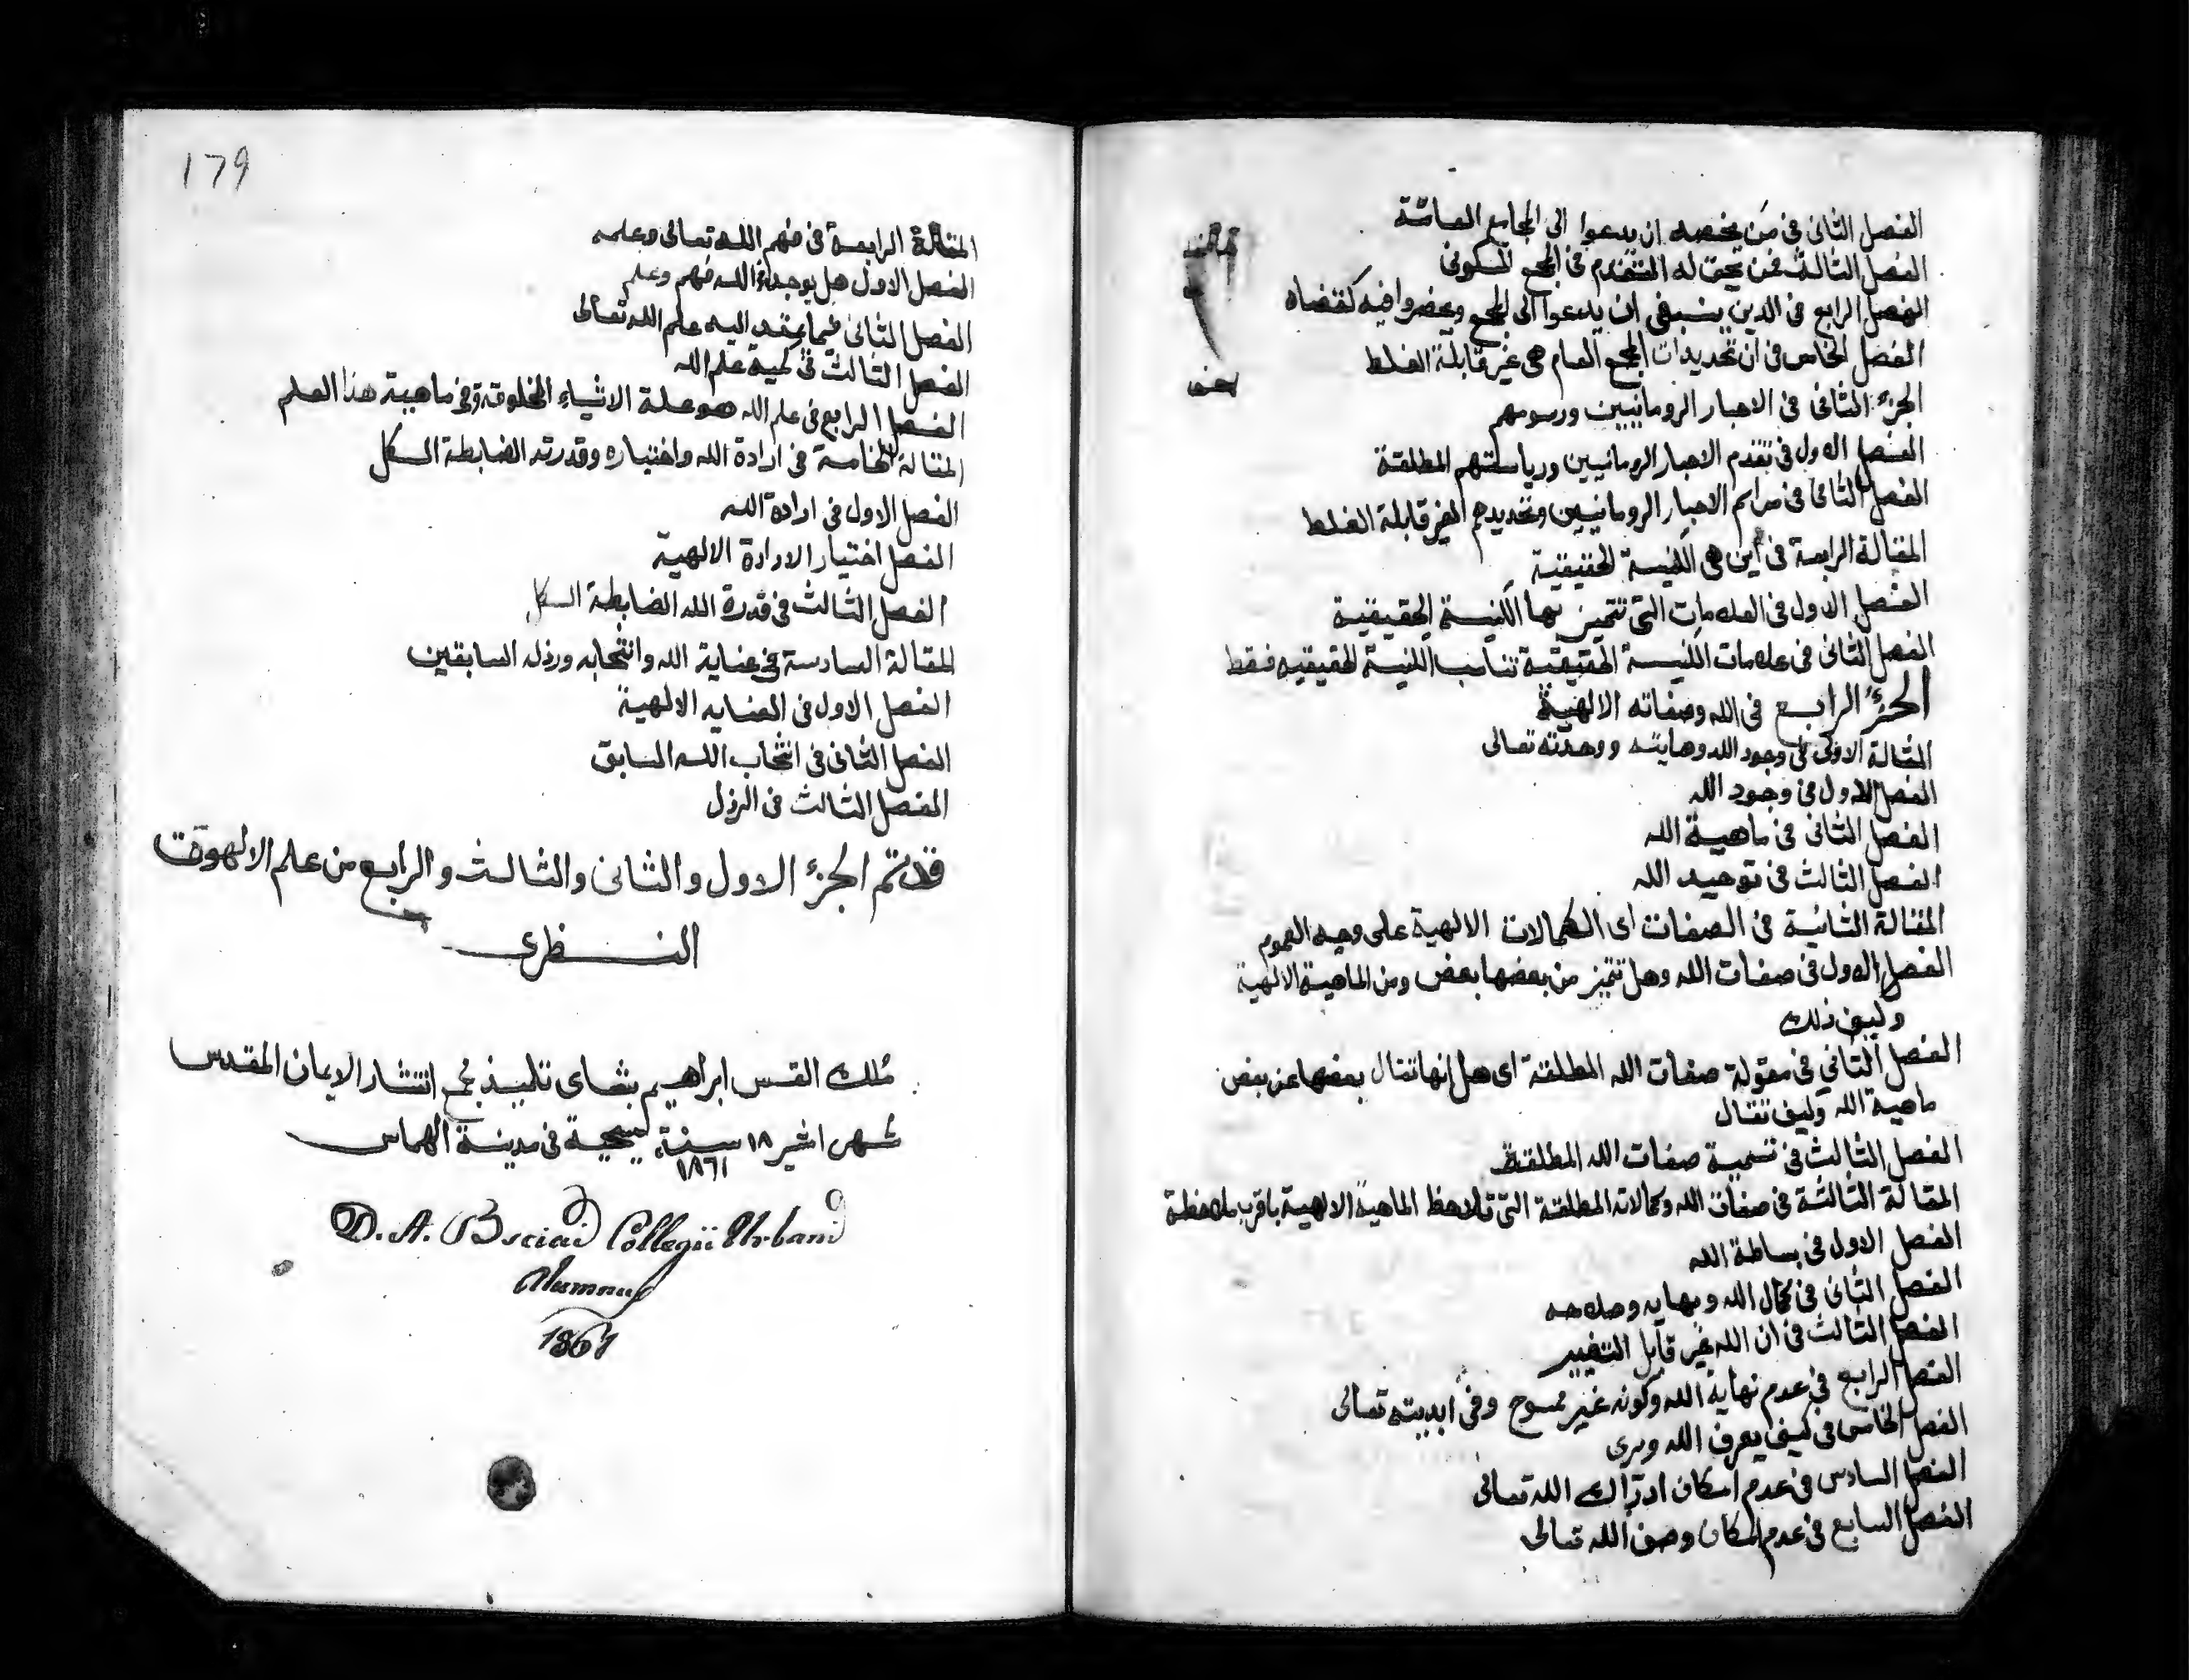 الفصل الثانى فى مَن يخصه ان يدعوا الى المجامع العامّة
الفصل الثالث فمن يحق له التقدم فى المجمع المسكونى
الفصل الرابع فى الدين ينبغى ان يدعوا الى المجمع ويحضروا فيه كقضاه
الفصل الخامس فى ان تحديدات المجمع العام هى غير قابلة الغلط
الجزء الثانى فى الاحبار الرومانيين ورسومهم
الفصل الاول فى تقدم الاحبار الرومانيين ورياستهم المطلقة
الفصل الثانى فى مراسم الاحبار الرومانيين وتحديدهم الغير قابلة الغلط
المقالة الرابعة فى اين هى الكنيسة الحقيقية
الفصل الاول فى العلامات التى تتميز بها الكنيسة الحقيقية
الفصل الثانى فى علامات الكنيسة الحقيقية تناسب الكنيسة الحقيقيه فقط
الجزء الرابع فى الله وصفاته الالهية
المقالة الاولى فى وجود الله وماهيته ووحدته تعالى
الفصل الاول فى وجود الله
الفصل الثانى فى ماهية الله
الفصل الثالث فى توحيد الله
المقالة الثانية فى الصفات اى الكمالات الالهية على وجه العموم
الفصل الاول فى صفات الله وهل تتميز من بعضها بعض ومن الماهية الالهية
وكيف ذلك
الفصل الثاني فى مقولة صفات الله المطلقة اى هل انها تقال بعضها عن بعض
ماهية الله وكيف تقال
الفصل الثالث فى تسمية صفات الله المطلقة
المقالة الثالثة فى صفات الله وكمالاته المطلقة التى تلاحظ الماهية الالهية باقرب ملاحظة
الفصل الاول فى بساطة الله
الفصل الثانى فى كمال الله وبهايه وصلاحه
الفصل الثالث فى ان الله غير قابل التغيير
الفصل الرابع فى عدم نهاية الله وكونه غير ممسوح وفى ابديته تعالى
الفصل الخامس فى كيف يعرف الله ويرى
الفصل السادس فى عدم امكان ادراك الله تعالى
الفصل السابع فى عدم امكان وصف الله تعالى
179
المقالة الرابعة فى فهم الله تعالى وعلمه
الفصل الاول هل يوجد فى الله فهم وعلم
الفصل الثانى فيما يمتد اليه علم الله تعالى
الفصل الثالث فى كمية علم الله
الفصل الرابع فى علم الله هو علة الاشياء المخلوقة وفى ماهية هذا العلم
المقالة الخامسة فى ارادة الله واختياره وقدرته الضابطة الكل
الفصل الاول فى ارادة الله
الفصل اختيار الارادة الالهية
الفصل الثالث فى قدرة الله الضابطة الكل
المقالة السادسة فى عناية الله وانتخابه ورذله السابقين
الفصل الاول فى العنايه الالهية
الفصل الثانى فى انتخاب الله السابق
الفصل الثالث فى الرذل
قد تم الجزء الاول والثانى والثالث والرابع من علم الالهوت
النظرى
مُلك القس ابراهيم بشاى تلميذ مجمع انتشار الايمان المقدس
شهر امشير ١٨ سنة ١٨٦١ مسيحية فى مدينة
D. A. Bsciai Collegii Urbani
Alumnus
1861